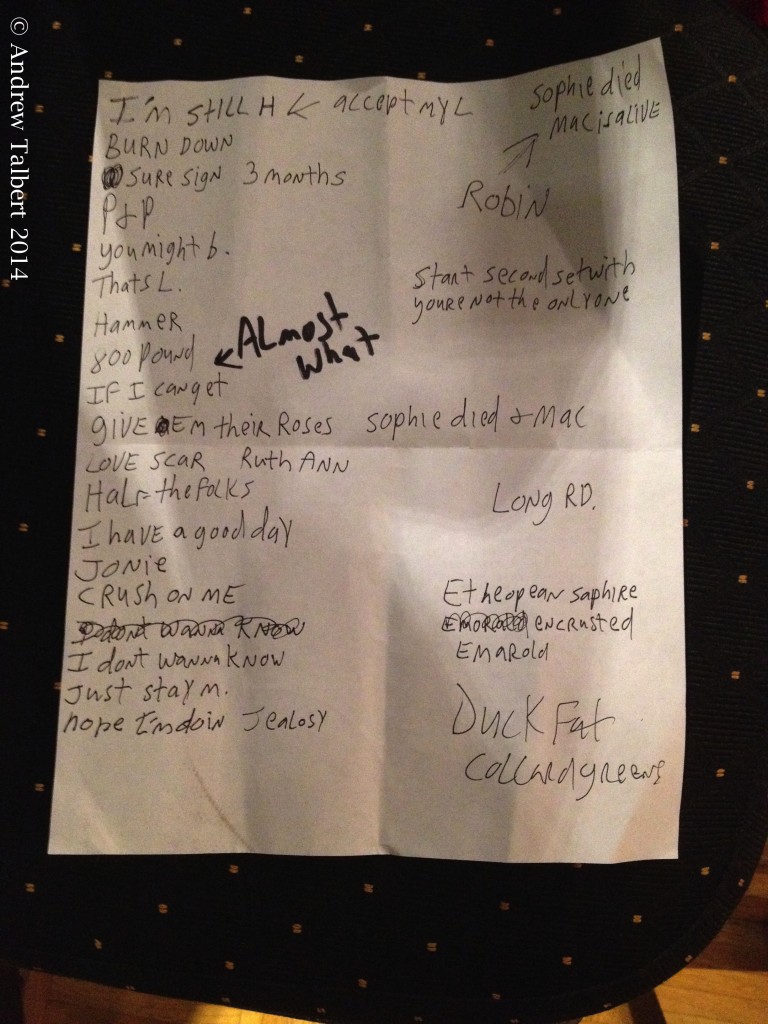 © Andrew Talbert 2014
I'm STILL H ← accept my L
Sophie died
mac is alive
BURN DOWN
SURE SIGN 3 months
Robin
P&P
you might b.
Thats L.
Start second set with
youre not the only one
Hammer
800 Pound ← ALmost
what
IF I can get
GIVE EM their Roses sophie died + mac
LOVE SCAR Ruth ANN
HALF the folks
LONG RD.
I have a good day
JONIE
CRUSH ON ME
Etheopean saphire
encrusted
Emarold
I dont wanna KNOW
I dont wanna KNOW
Just stay m.
hope Im doin Jealosy
Duck Fat
Collard greens